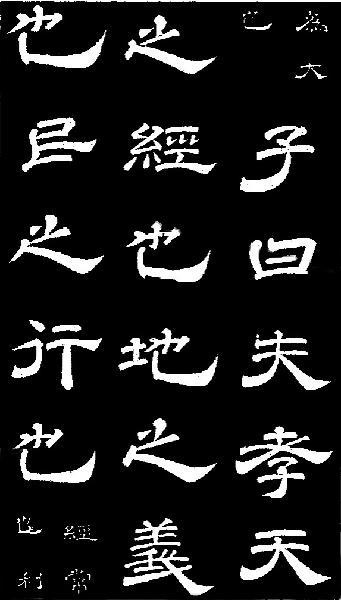 為大
也
子曰夫孝天
之經也地之義
也民之行也
經常
也利